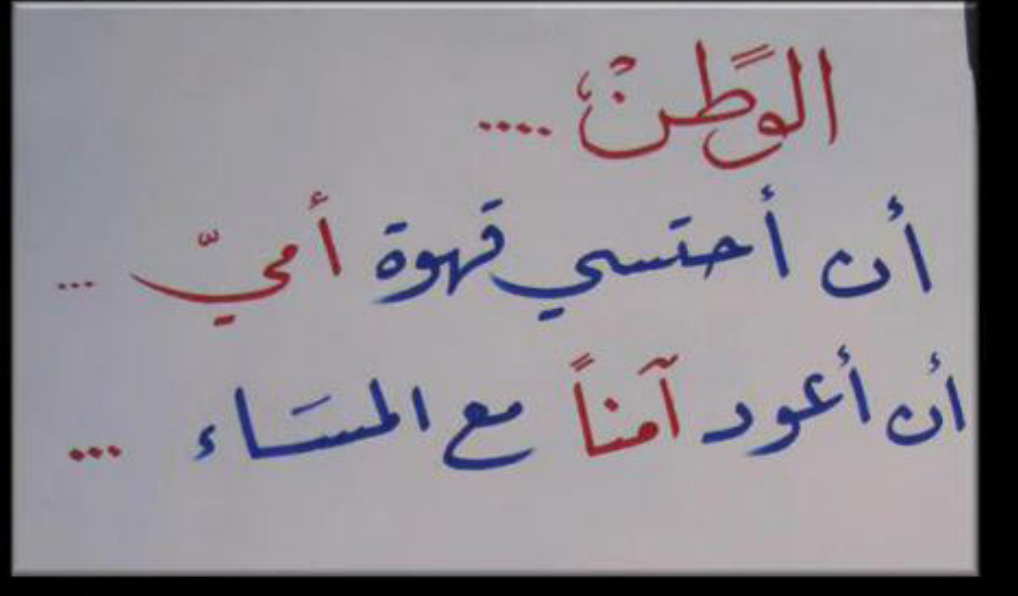 الوَطنْ ....
أن أحتسي قهوة أميّ ...
أن أعود آمناً مع المسَاء ...